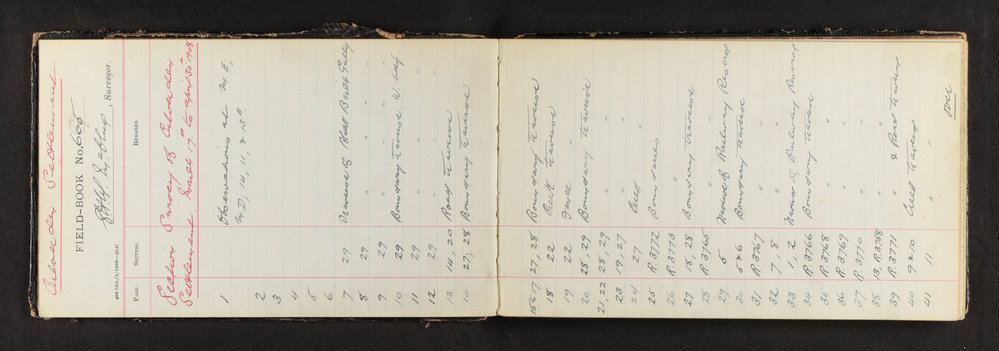 Culverden Settlement
FIELD-BOOK No. 606
, Surveyor.
400 bks./1/1906—9546
PAGE. SECTION. REMARKS.
Section Survey of Culverden
Settlement. to April 30th 1908
1 Observations at M.E,
M.D, 14, 11, & 13 B
2
3
4
5
6
7 29 Traverse of Gully
8 29 " " "
9 29 " " "
10 29 Boundary traverse & bdy.
11 29 " " "
12 29 " " "
13 14, 20 Road traverse
14 27, 28 Boundary traverse
15 & 17 27, 28 Boundary traverse
18 22 Creek traverse
19 22 "
20 28, 29 Boundary traverse
21, 22 28, 29 " "
23 19, 27 " "
24 27 Creek "
25 R. 3772 Boundaries
26 R. 3773 "
27 18, 28 Boundary traverse
28 R. 3765 " "
29 5 Traverse of Railway Reserve
30 5 & 6 Boundary traverse
31 R. 3767 " "
32 7, 8 " "
33 1, 2 Traverse of Railway Reserve
34 R. 3766 Boundary traverse
35 R. 3768 " "
36 R. 3769 " "
37 R. 3770 " "
38 13, R. 3768 " "
39 R. 3771 " " & Road traverse
40 9 & 10 Creek traverse
41 11 " "
over